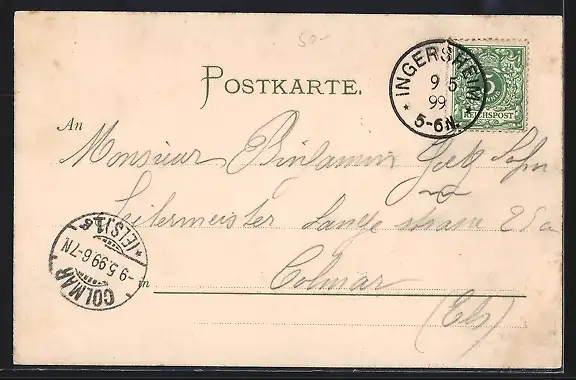 50-
POSTKARTE.
INGERSHEIM
9 5
99
5-6N.
5
REICHSPOST
An
Monsieur Binjamin Goetz Sohn
Seilermeister Lange strasse 25a
in Colmar
(Els)
COLMAR
-9.5.99.6-7N
*(ELS)1.*